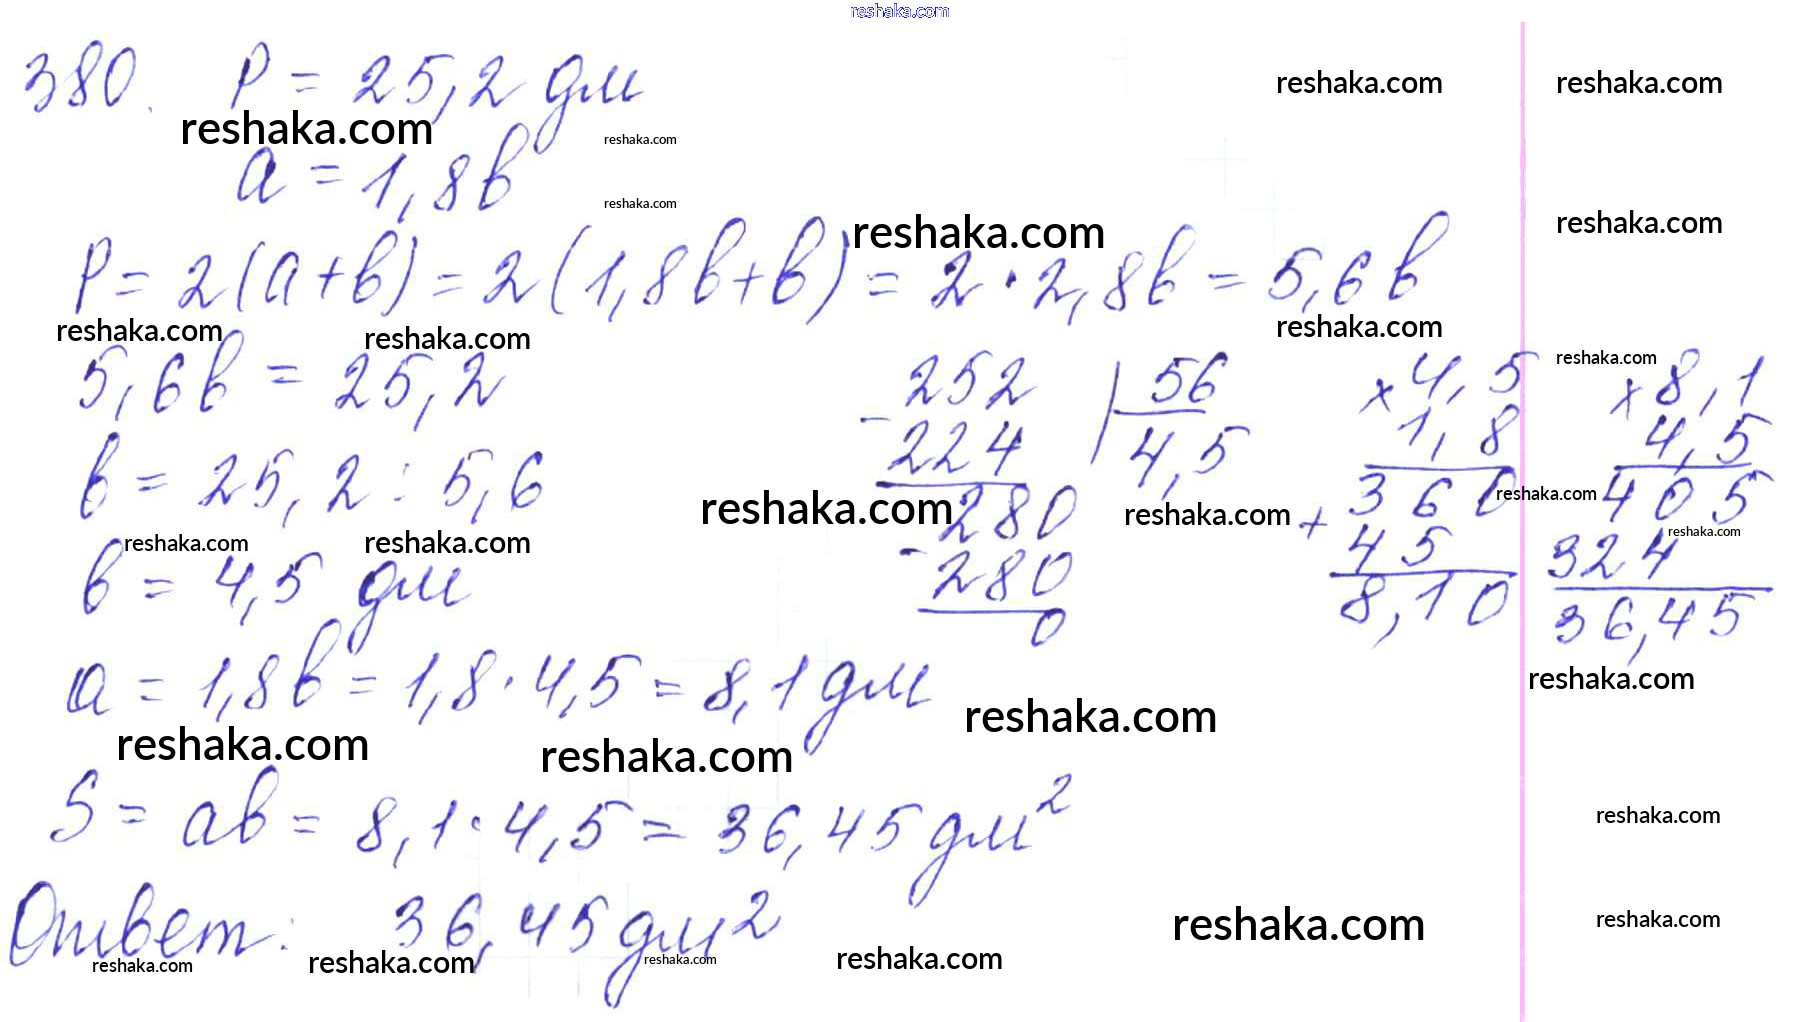 reshaka.com
380. P = 25,2 дм
reshaka.com reshaka.com
reshaka.com reshaka.com
a = 1,8b
reshaka.com
reshaka.com reshaka.com
P = 2(a+b) = 2(1,8b+b) = 2 · 2,8b = 5,6b
reshaka.com reshaka.com reshaka.com
5,6b = 25,2
b = 25,2 : 5,6
reshaka.com reshaka.com
b = 4,5 дм
- 252 | 56
224 4,5
reshaka.com reshaka.com
280
- 280
0
× 4,5
1,8
360
+ 45
8,10
reshaka.com
× 8,1
4,5
reshaka.com
405
reshaka.com
324
36,45
reshaka.com
a = 1,8b = 1,8 · 4,5 = 8,1 дм
reshaka.com reshaka.com reshaka.com
S = ab = 8,1 · 4,5 = 36,45 дм²
reshaka.com
Ответ: 36,45 дм²
reshaka.com reshaka.com
reshaka.com reshaka.com reshaka.com reshaka.com